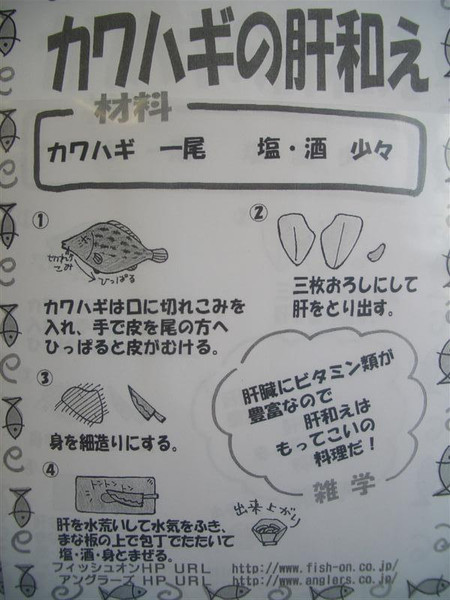 カワハギの肝和え
材料
カワハギ 一尾 塩・酒 少々
①
切れこみ
ひっぱる
カワハギは口に切れこみを
入れ、手で皮を尾の方へ
ひっぱると皮がむける。
②
三枚おろしにして
肝をとり出す。
③
身を細造りにする。
肝臓にビタミン類が
豊富なので
肝和えは
もってこいの
料理だ!
雑学
④
トントントン
肝を水荒いして水気をふき、
まな板の上で包丁でたたいて
塩・酒・身とまぜる。
出来上がり
フィッシュオンHP URL http://www.fish-on.co.jp/
アングラーズHP URL http://www.anglers.co.jp/